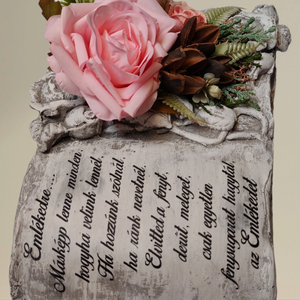 Emlékedre.....
Másképp lenne minden,
hogyha velünk lennél,
Ha hozzánk szólnál,
ha ránk nevetnél.
Elvitted a fényt,
derűt, meleget,
csak egyetlen
fénysugarat hagytál,
az Emlékedet